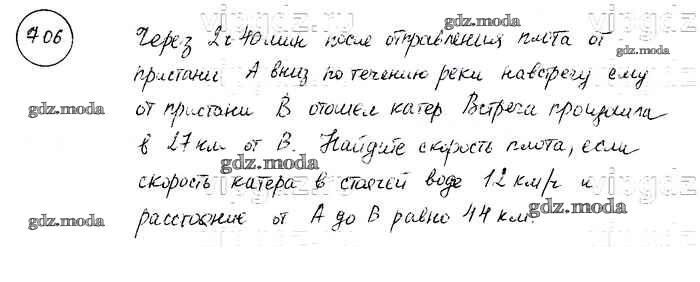 706 Через 2ч 40 мин после отправления плота от
пристани А вниз по течению реки навстречу ему
от пристани В отошел катер Встреча произошла
в 27 км от В. Найдите скорость плота, если
скорость катера в стоячей воде 12 км/ч и
расстояние от А до В равно 44 км.
gdz.moda
gdz.moda
gdz.moda
gdz.moda
gdz.moda
gdz.moda
gdz.moda
gdz.moda
vipgdz
vipgdz